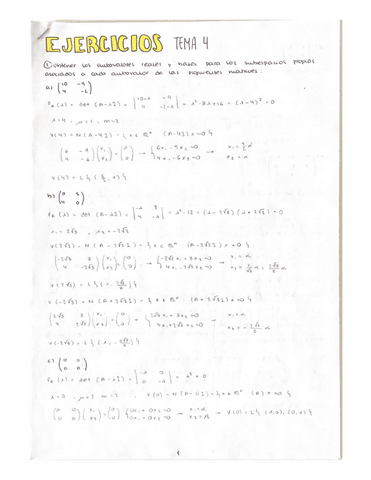 EJERCICIOS TEMA 4
① Obtener los autovalores reales y bases para los subespacios propios
asociados a cada autovalor de las siguientes matrices.
a) (10 -9
4 -2)
P_A(λ) = det (A-λI) = |10-λ -9
4 -2-λ| = λ²-8λ+16 = (λ-4)² = 0
λ=4, μ=1, m=2
V(4) = N(A-4I) = { x ∈ ℝⁿ (A-4I)x=0 }
(6 -9
4 -6)(x₁
x₂)=(0
0) → {6x₁-9x₂=0
4x₁-6x₂=0 →
b) (0 3
4 0)
P_A(λ) = det (A-λI) = |-λ 3
4 -λ| = λ²-12 = (λ-2√3)(λ+2√3) = 0
λ₁=2√3, λ₂=-2√3
V(2√3) = N(A-2√3I) = { x ∈ ℝⁿ (A-2√3I)x=0 }
(-2√3 3
4 -2√3)(x₁
x₂)=(0
0) → {-2√3x₁+3x₂=0
4x₁-2√3x₂=0 →
V(-2√3) = N(A+2√3I) = { x ∈ ℝⁿ (A+2√3I)x=0 }
(2√3 3
4 2√3)(x₁
x₂)=(0
0) → {2√3x₁+3x₂=0
4x₁+2√3x₂=0 →
c) (0 0
0 0)
P_A(λ) = det (A-λI) = |-λ 0
0 -λ| = λ² = 0
V(0) = N(A-0I) = { x ∈ ℝⁿ (A)x=0 }
(0 0
0 0)(x₁
x₂)=(0
0) {0x₁+0x₂=0
0x₁+0x₂=0 → V(0) = L{(1,0),(0,1)}
1